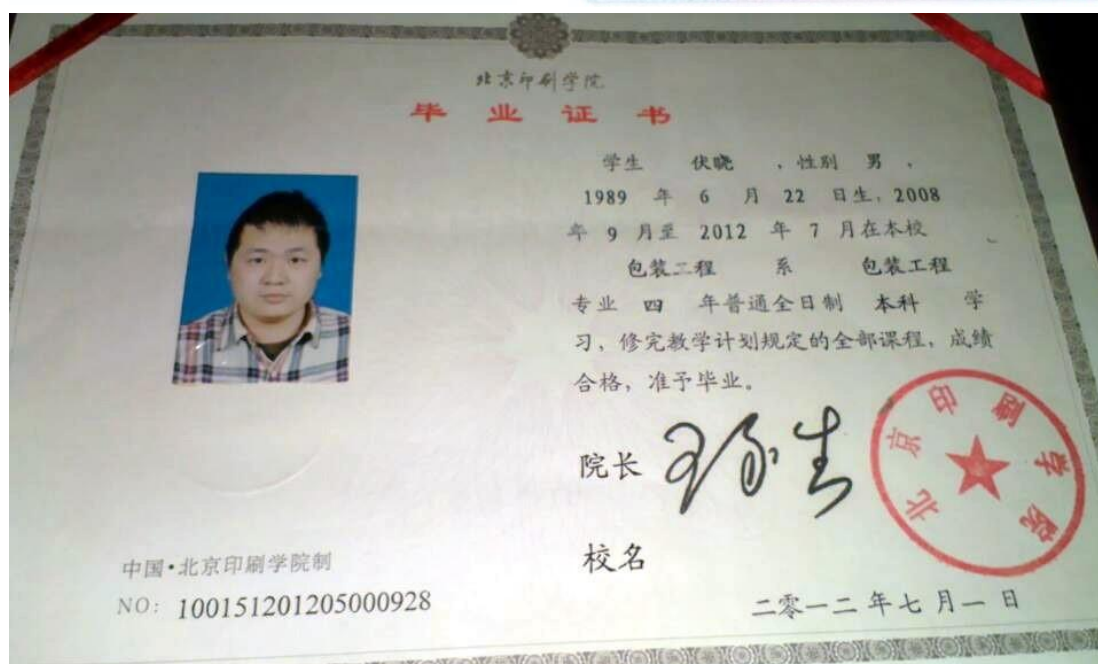 北京印刷学院
毕业证书
学生 伏晓 ，性别 男 ，
1989 年 6 月 22 日生，2008
年 9 月至 2012 年 7 月在本校
包装工程 系 包装工程
专业 四 年普通全日制 本科 学
习，修完教学计划规定的全部课程，成绩
合格，准予毕业。
院长
北京印刷学院
校名
中国•北京印刷学院制
NO: 100151201205000928
二零一二年七月一日